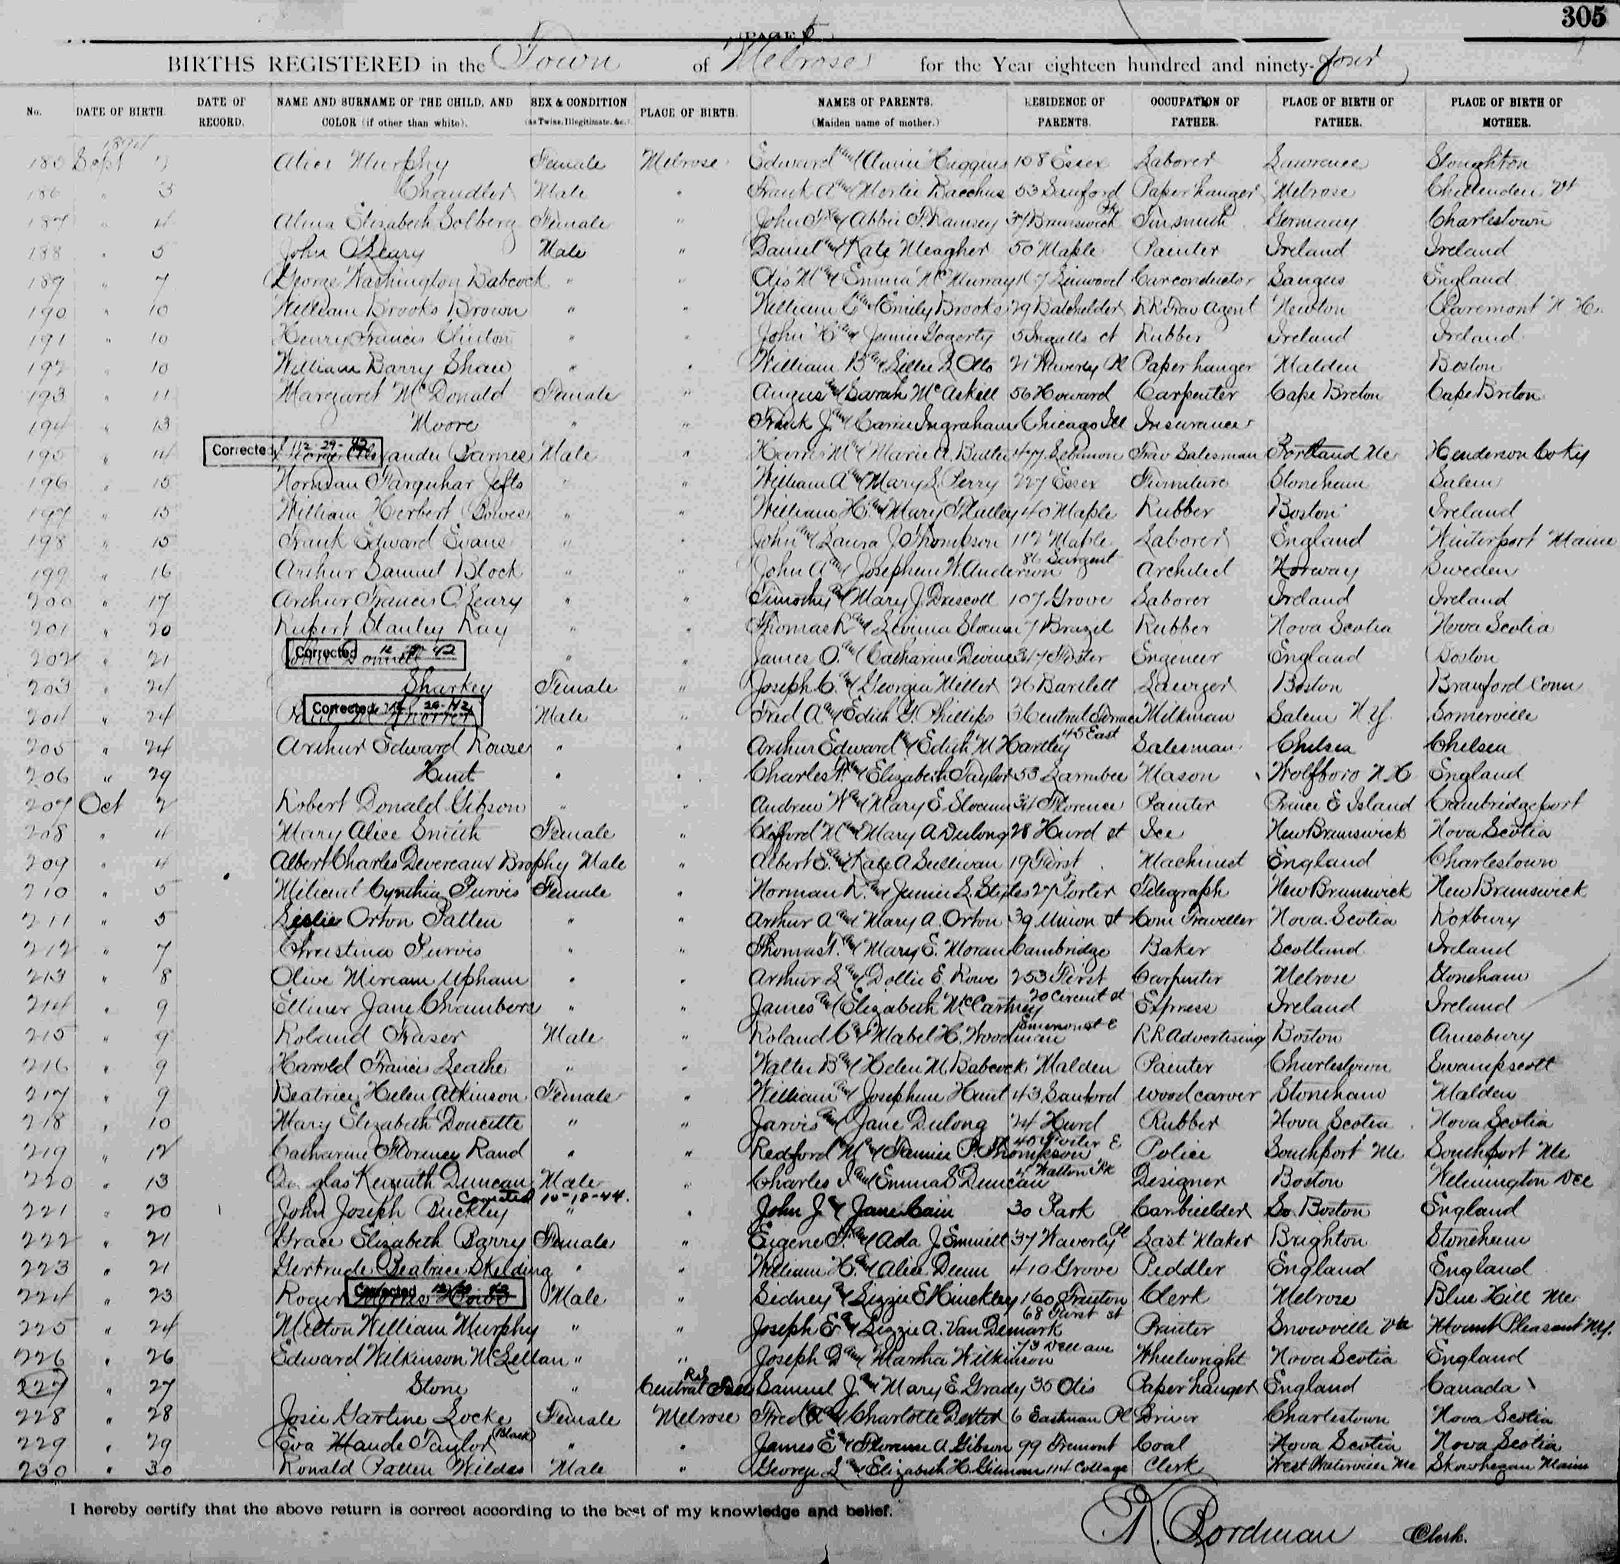 305
PAGE
BIRTHS REGISTERED in the Town of Melrose for the Year eighteen hundred and ninety-four
No. DATE OF BIRTH. DATE OF RECORD. NAME AND SURNAME OF THE CHILD, AND COLOR (if other than white). SEX & CONDITION (as Twins, Illegitimate, &c.) PLACE OF BIRTH. NAMES OF PARENTS. (Maiden name of mother.) RESIDENCE OF PARENTS. OCCUPATION OF FATHER. PLACE OF BIRTH OF FATHER. PLACE OF BIRTH OF MOTHER.
1894
185 Sept Alice Murphy Female Melrose Edward and Annie Huggins 108 Essex Laborer Lawrence Stoughton
186 " 3 Chandler Male " Frank A and Mertie Bacchus 53 Paper hanger Melrose Chittenden Vt
187 " 4 Alma Elizabeth Solberg Female " John and Abbie F Ramsey 37 Brunswick Pk Tinsmith Germany Charlestown
188 " 5 John O'Leary Male " Daniel and Kate Meagher 50 Maple Painter Ireland Ireland
189 " 7 George Washington Babcock " " Otis M and Emma McMurray 17 Linwood Car conductor Saugus England
190 " 10 William Brooks Brown " " William C and Emily Brooks 29 Batchelder RR Trav Agent Newton Claremont N H
191 " 10 Henry Francis Clinton " " John H and Jennie Fogerty 5 Ingalls ct Rubber Ireland Ireland
192 " 10 William Barry Shaw " " William B and Lillie L Otis 21 Waverly Pl Paper hanger Malden Boston
193 " 11 Margaret McDonald Female " Angus and Sarah McAskell 56 Howard Carpenter Cape Breton Cape Breton
194 " 13 Moore " " Frank J. and Carrie Ingraham Chicago Ill Insurance
195 " 14 Corrected 12-29-42 Barnes Male " Harris M and Marie A. Butler 47 Lebanon Trav Salesman Portland Me Henderson Co Ky
196 " 15 Norman Farquhar Jefts " " William A and Mary L Perry 227 Essex Furniture Stoneham Salem
197 " 15 William Herbert Bowes " " William H. and Mary 40 Maple Rubber Boston Ireland
198 " 15 Frank Edward Evans " " John and Laura J Thompson 112 Maple Laborer England Winterport Maine
199 " 16 Arthur Samuel Block " " John A and Josephine W. Anderson 86 Sargent Architect Norway Sweden
200 " 17 Arthur Francis O'Leary " " Timothy and Mary J. Driscoll 107 Grove Laborer Ireland Ireland
201 " 20 Rupert Stanley Ray " " Thomas R and Levinia Slocum 7 Brazil Rubber Nova Scotia Nova Scotia
202 " 21 Corrected 12 42 " " James O. and Catharine Devine 347 Foster Engeneer England Boston
203 " 24 Sharkey Female " Joseph C. and Georgia Miller 26 Bartlett Lawyer Boston Branford Conn
204 " 24 Corrected Male " Fred A and Edith G Phillips 3 Central Terrace Milkman Salem N Y. Somerville
205 " 24 Arthur Edward Rowse " " Arthur Edward and Edith M Hartley 45 East Salesman Chelsea Chelsea
206 " 29 Hunt " " Charles H. and Elizabeth Taylor 53 Larrabee Mason Wolfboro N H England
207 Oct 2 Robert Donald Gibson " " Andrew W and Mary E. Slocum 34 Florence Painter Prince E Island Cambridgeport
208 " 4 Mary Alice Smith Female " Clifford M and Mary A Dulong 28 Hurd st Ice New Brunswick Nova Scotia
209 " 4 Albert Charles Devereaux Brophy Male " Albert E. and Kate A Sullivan 19 First Machinist England Charlestown
210 " 5 Milicent Cynthia Purvis Female " Norman R. and Jennie L Stiles 27 Porter Telegraph New Brunswick New Brunswick
211 " 5 Leslie Orton Patten " " Arthur A and Mary A. Orton 39 Union st Com Traveller Nova Scotia Roxbury
212 " 7 Christina Purvis " " Thomas F. and Mary E. Moran Cambridge Baker Scotland Ireland
213 " 8 Olive Miriam Upham " " Arthur L and Dollie E. Rowe 253 First Carpenter Melrose Stoneham
214 " 9 Ellinor Jane Chambers " " James and Elizabeth McCartney 20 Circuit st Express Ireland Ireland
215 " 9 Roland Fraser Male " Roland C and Mabel H. Woodman Emerson st E RR Advertising Boston Amesbury
216 " 9 Harold Francis Leathe " " Walter B and Helen M. Babcock Malden Painter Charlestown Swampscott
217 " 9 Beatrice Helen Atkinson Female " William and Josephine Hunt 43 Sanford Woodcarver Stoneham Malden
218 " 10 Mary Elizabeth Doucette " " Jarvis and Jane Dulong 24 Hurd Rubber Nova Scotia Nova Scotia
219 " 12 Catharine Florence Rand " " Redford M and Fannie P. Thompson 40 Foster E Police Southport Me Southport Me
220 " 13 Douglas Kenneth Duncan Male " Charles J. and Emma S Duncan 4 Walton Pk Designer Boston Wilmington Del
221 " 20 John Joseph Buckley Corrected 10-18-44. " " John J. & Jane Cain 30 Park Carbuilder So. Boston England
222 " 21 Grace Elizabeth Barry Female " Eugene F. and Ada J. Emmett 37 Waverly Pl Last Maker Brighton Stoneham
223 " 21 Gertrude Beatrice Skelding " " William H. and Alice Dunn 410 Grove Peddler England England
224 " 23 Roger Corrected Male " Sidney and Lizzie E Hinckley 160 Trenton Clerk Melrose Blue Hill Me
225 " 24 Milton William Murphy " " Joseph E and Lizzie A. Van Demark 68 First st Painter Snowville Va Mount Pleasant N.Y.
226 " 26 Edward Wilkinson McLellan " " Joseph D and Martha Wilkinson 73 Dell ave Wheelwright Nova Scotia England
227 " 27 Stone " Central Falls R.I. Samuel J. and Mary E. Grady 35 Otis Paper hanger England Canada
228 " 28 Josie Gartine Locke Female Melrose Fred and Charlotte Dexter 6 Eastman Pl Driver Charlestown Nova Scotia
229 " 29 Eva Maude Taylor (Black) " " James E and Florence A. Gibson 99 Tremont Coal Nova Scotia Nova Scotia
230 " 30 Ronald Patten Wildes Male " George L and Elizabeth H. Gilman 114 Cottage Clerk West Waterville Me Skowhegan Maine
I hereby certify that the above return is correct according to the best of my knowledge and belief.
Clerk.